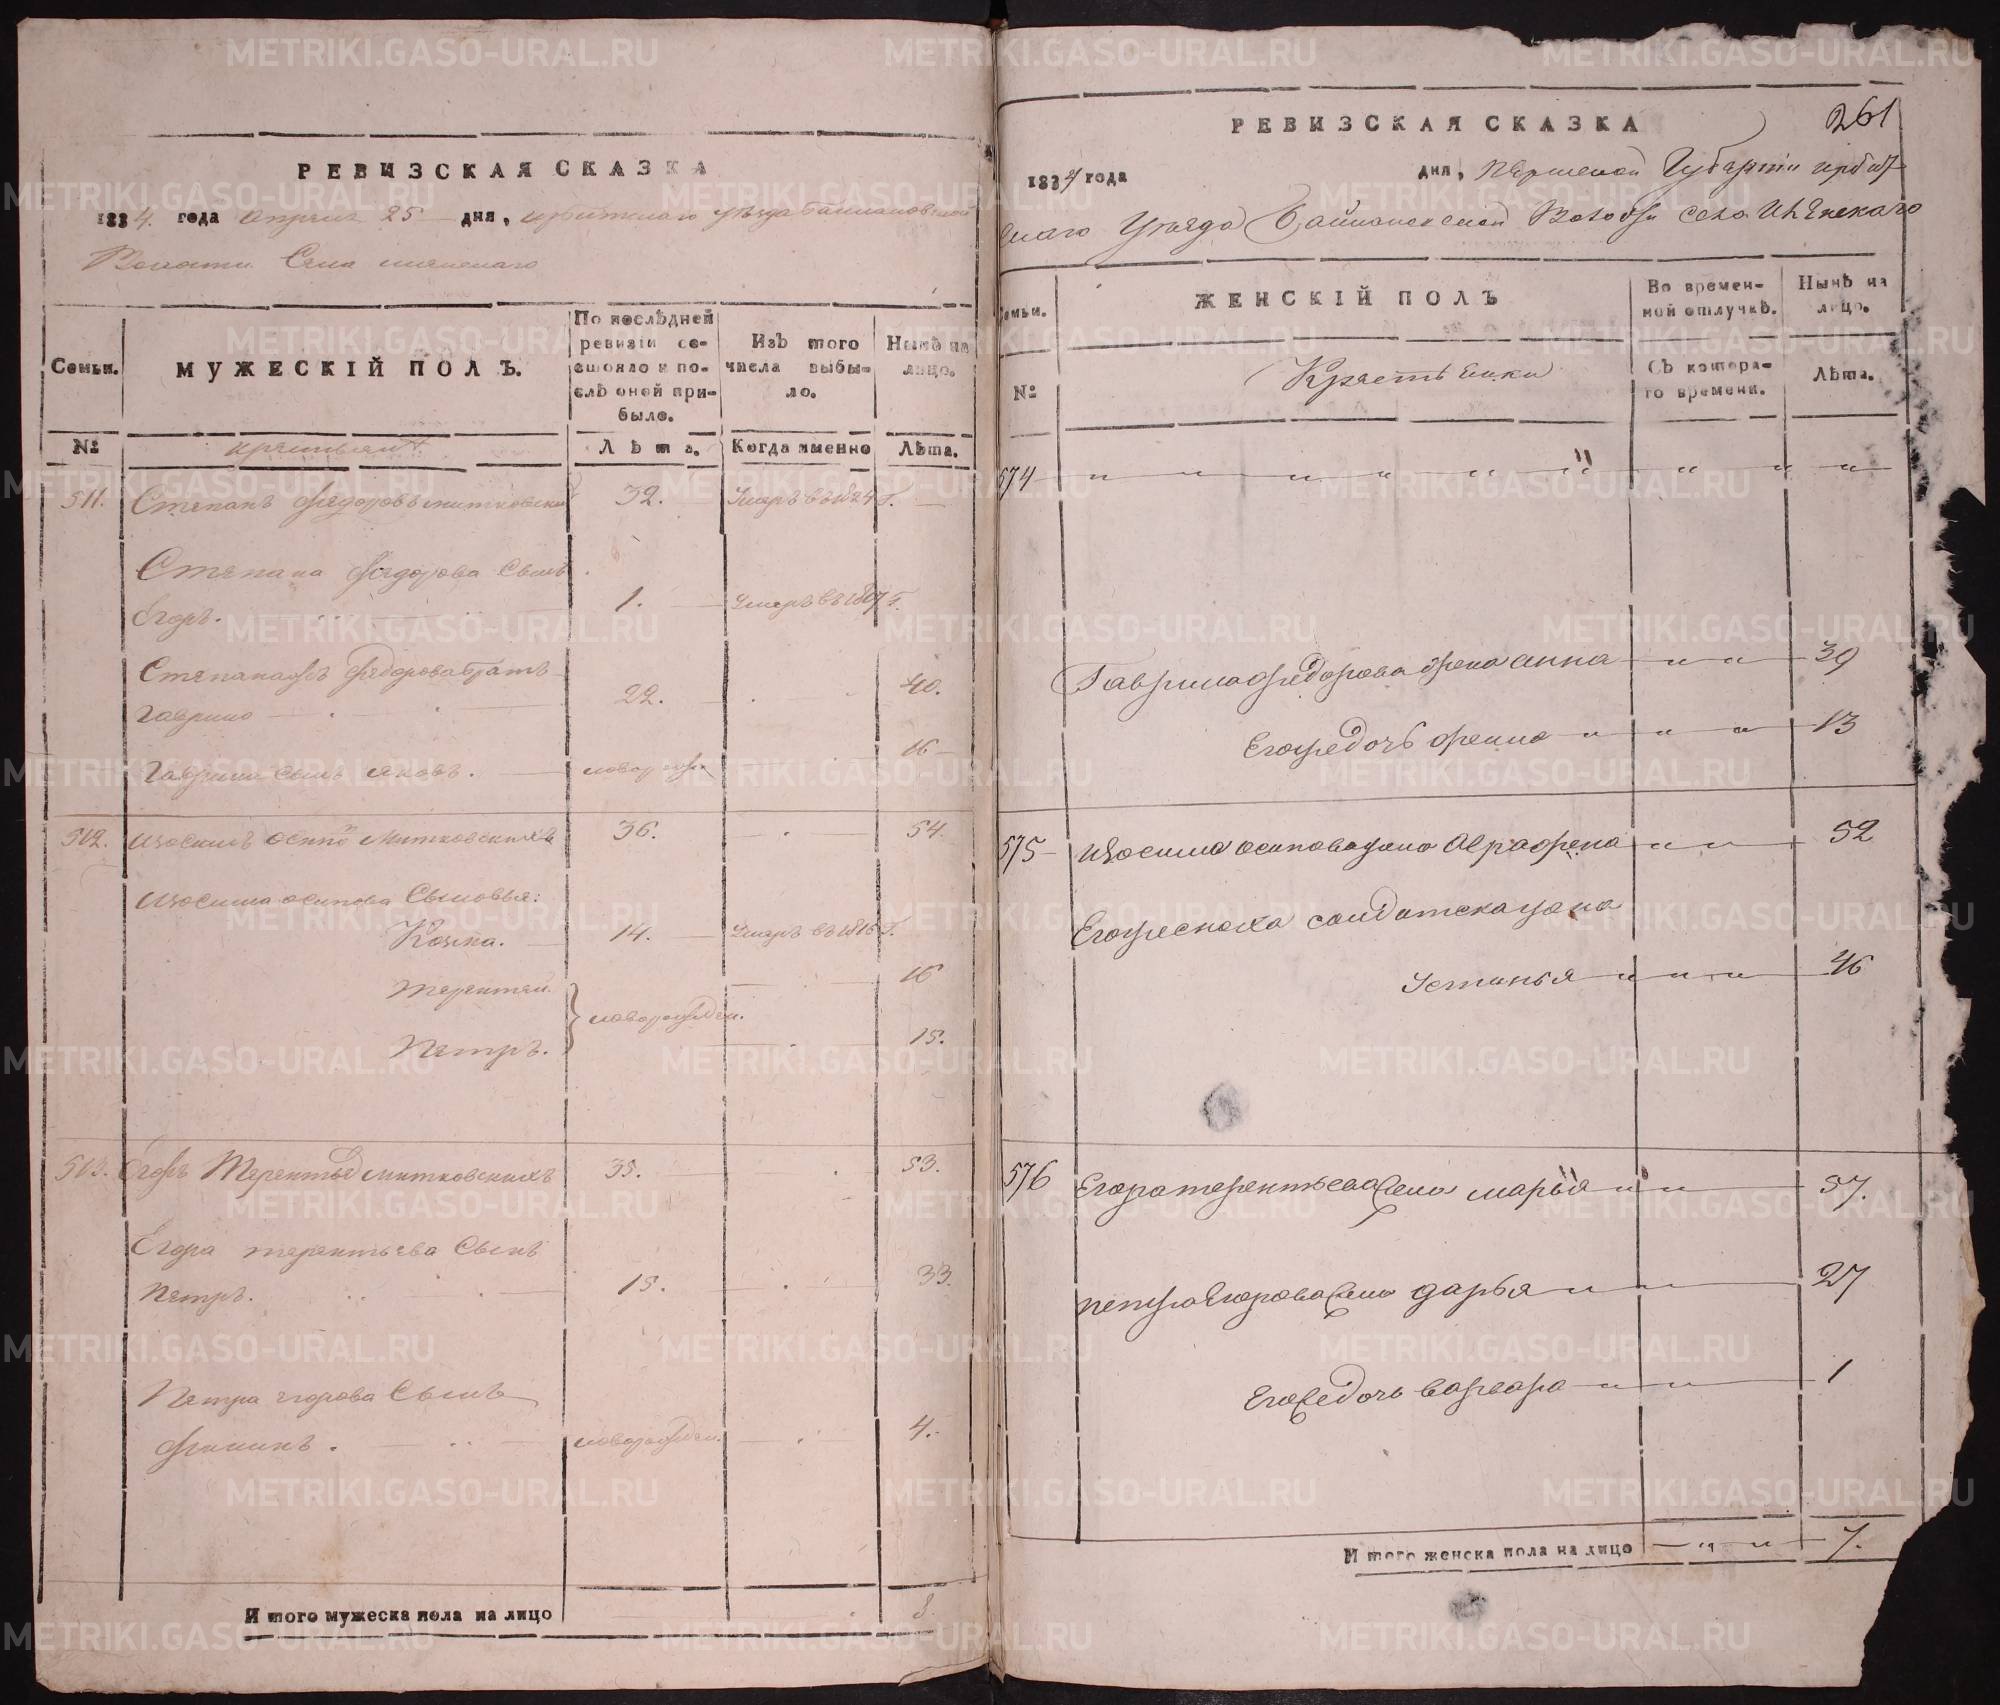 РЕВИЗСКАЯ СКАЗКА
1834. года Апреля 25 дня, ирбитскаго уѣзда баилаковской
Волости Села
Семьи. МУЖЕСКІЙ ПОЛЪ. По послѣдней ревизіи состояло и послѣ оной прибыло. Изъ того числа выбыло. Нынѣ на лицо.
№ Лѣта. Когда именно Лѣта.
511. Степанъ Федоровъ митковских 32. Умеръ въ 1824 Г.
Степана Федорова Сынъ
Егоръ. 1. Умеръ въ 1817 Г.
Степановъ Федорова братъ
Гаврило 22. 40.
Гаврилы сынъ яковъ. новорожд. 16
512. Изосимъ осипов Митковскихъ 36. 54.
Изосима осипова Сыновья:
Козма. 14. Умеръ въ 1816 Г.
терентей 16
новорожден.
Петръ. 15.
513. Егоръ Терентьев митковскихъ 35. 53.
Егора терентьева Сынъ
Петръ. 15. 33.
Петра егорова Сынъ
новорожден. 4.
И того мужеска пола на лицо 8
261
РЕВИЗСКАЯ СКАЗКА
1834 года дня, Пермской Губернии ирбит
скаго Уезда Волости села
Семьи. ЖЕНСКІЙ ПОЛЪ Во временной отлучкѣ. Нынѣ на лицо.
№ Крестьенки Съ котораго времени. Лѣта.
574
Гаврила федорова жена анна 39
Егожедочь 13
575 Изосима осипова жена Аграфена 52
Егожесноха солдатская жена
Устинья 46
576 Егора терентьева жена марья 57.
петра Егорова жена дарья 27
Егожедочь варвара 1
И того женска пола на лицо 7.
METRIKI.GASO-URAL.RU